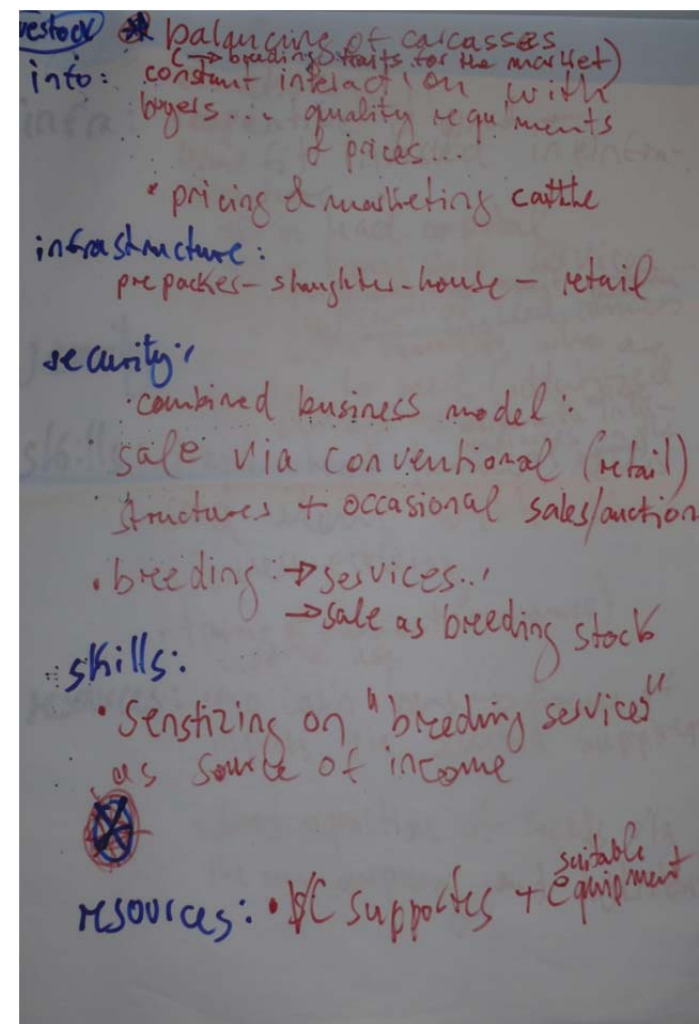 vestock balancing of carcasses
(→ breeding traits for the market)
info: constant interaction with
buyers... quality requ'ments
& prices...
• pricing & marketing cattle
infrastructure:
prepacker - slaughter-house - retail
security:
• combined business model:
sale via conventional (retail)
structures + occasional sales/auction
• breeding → services...
→ sale as breeding stock
skills:
• Senstizing on "breeding services"
as source of income
resources: • VC supportes + suitable equipment